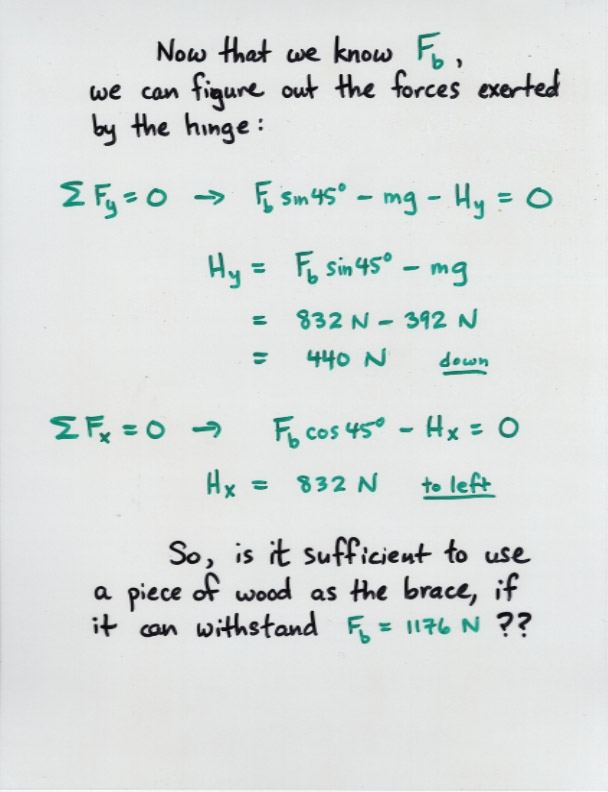 Now that we know F_b,
we can figure out the forces exerted
by the hinge:
Σ F_y = 0 → F_b sin 45° - mg - H_y = 0
H_y = F_b sin 45° - mg
= 832 N - 392 N
= 440 N down
Σ F_x = 0 → F_b cos 45° - H_x = 0
H_x = 832 N to left
So, is it sufficient to use
a piece of wood as the brace, if
it can withstand F_b = 1176 N ??